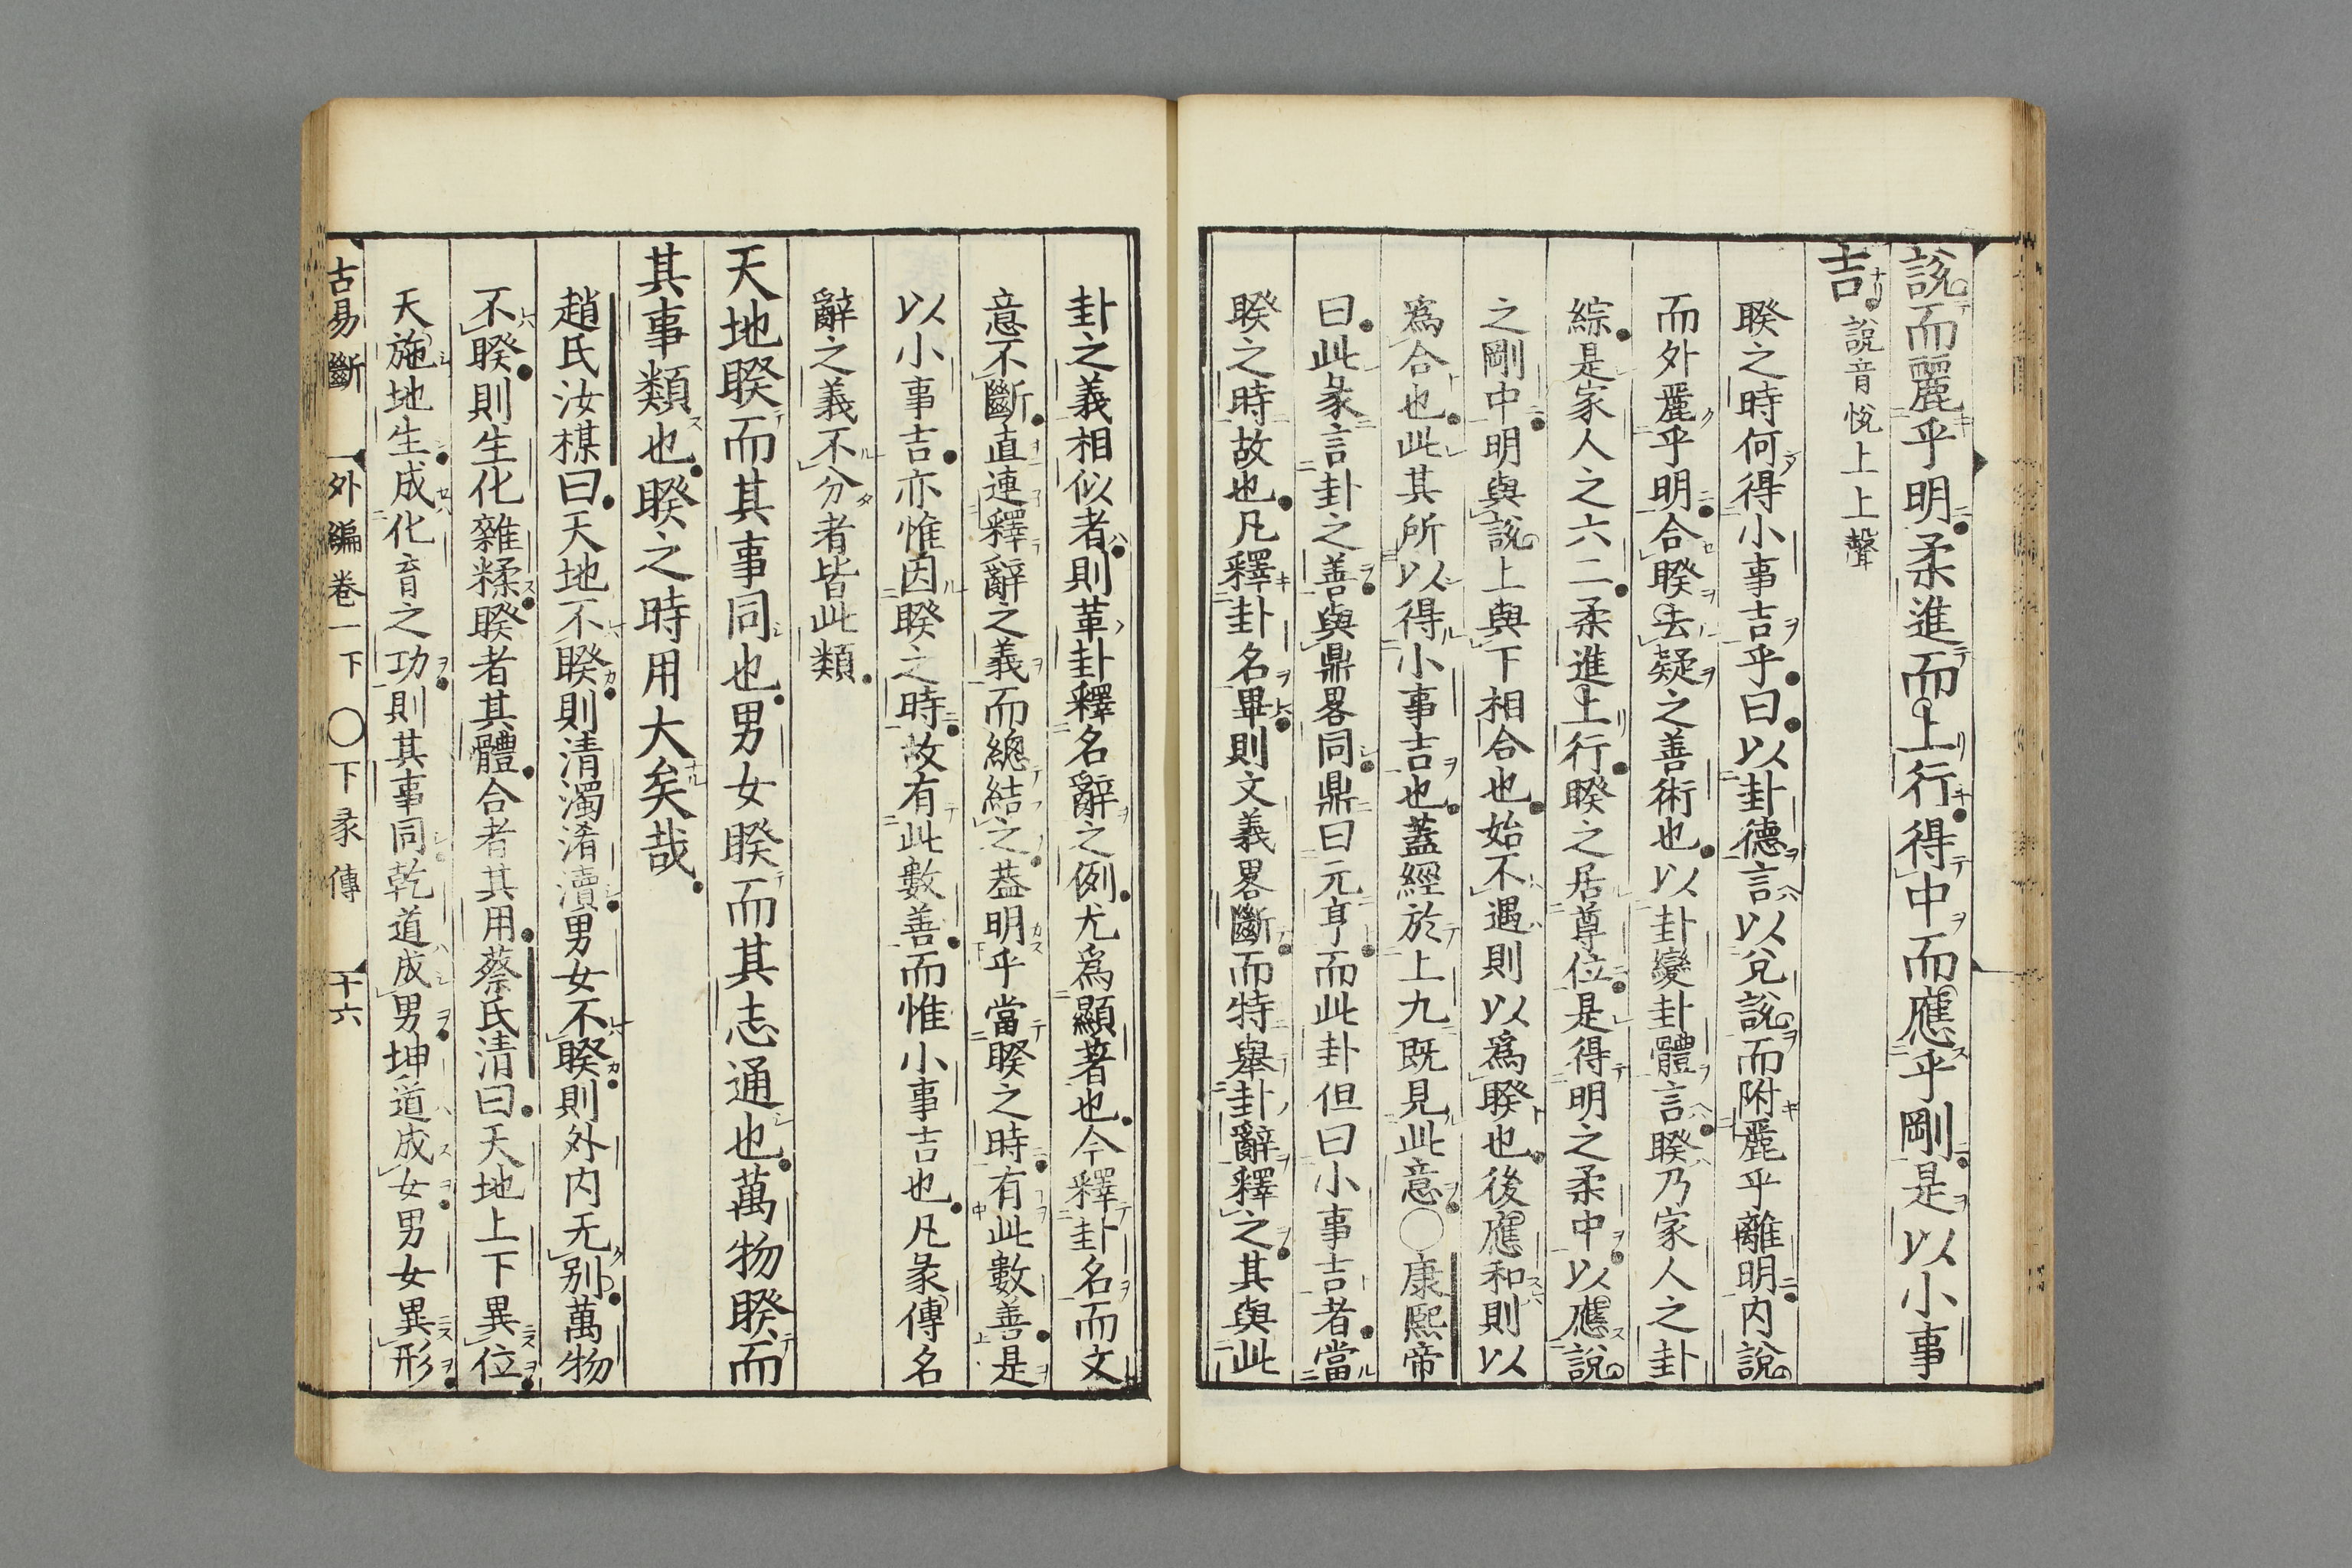 說而麗乎明柔進而上行得中而應乎剛是以小事
吉說音悅上上聲
睽之時何得小事吉乎曰以卦德言以兌說而附麗乎離明內說
而外麗乎明合睽去疑之善術也以卦變卦體言睽乃家人之卦
綜是家人之六二柔進上行睽之居尊位是得明之柔中以應說
之剛中明與說上與下相合也始不遇則以爲睽也後應和則以
爲合也此其所以得小事吉也蓋經於上九既見此意○康熙帝
曰此彖言卦之善與鼎畧同鼎曰元亨而此卦但曰小事吉者當
睽之時故也凡釋卦名畢則文義畧斷而特舉卦辭釋之其與此
卦之義相似者則革卦釋名辭之例尤爲顯著也今釋卦名而文
意不斷直連釋辭之義而總結之益明乎當睽之時有此數善是
以小事吉亦惟因睽之時故有此數善而惟小事吉也凡彖傳名
辭之義不分者皆此類
天地睽而其事同也男女睽而其志通也萬物睽而
其事類也睽之時用大矣哉
趙氏汝楳曰天地不睽則清濁淆瀆男女不睽則外內无別萬物
不睽則生化雜糅睽者其體合者其用蔡氏清曰天地上下異位
天施地生成化育之功則其事同乾道成男坤道成女男女異形
古易斷 外編卷一下 ○下彖傳 十六